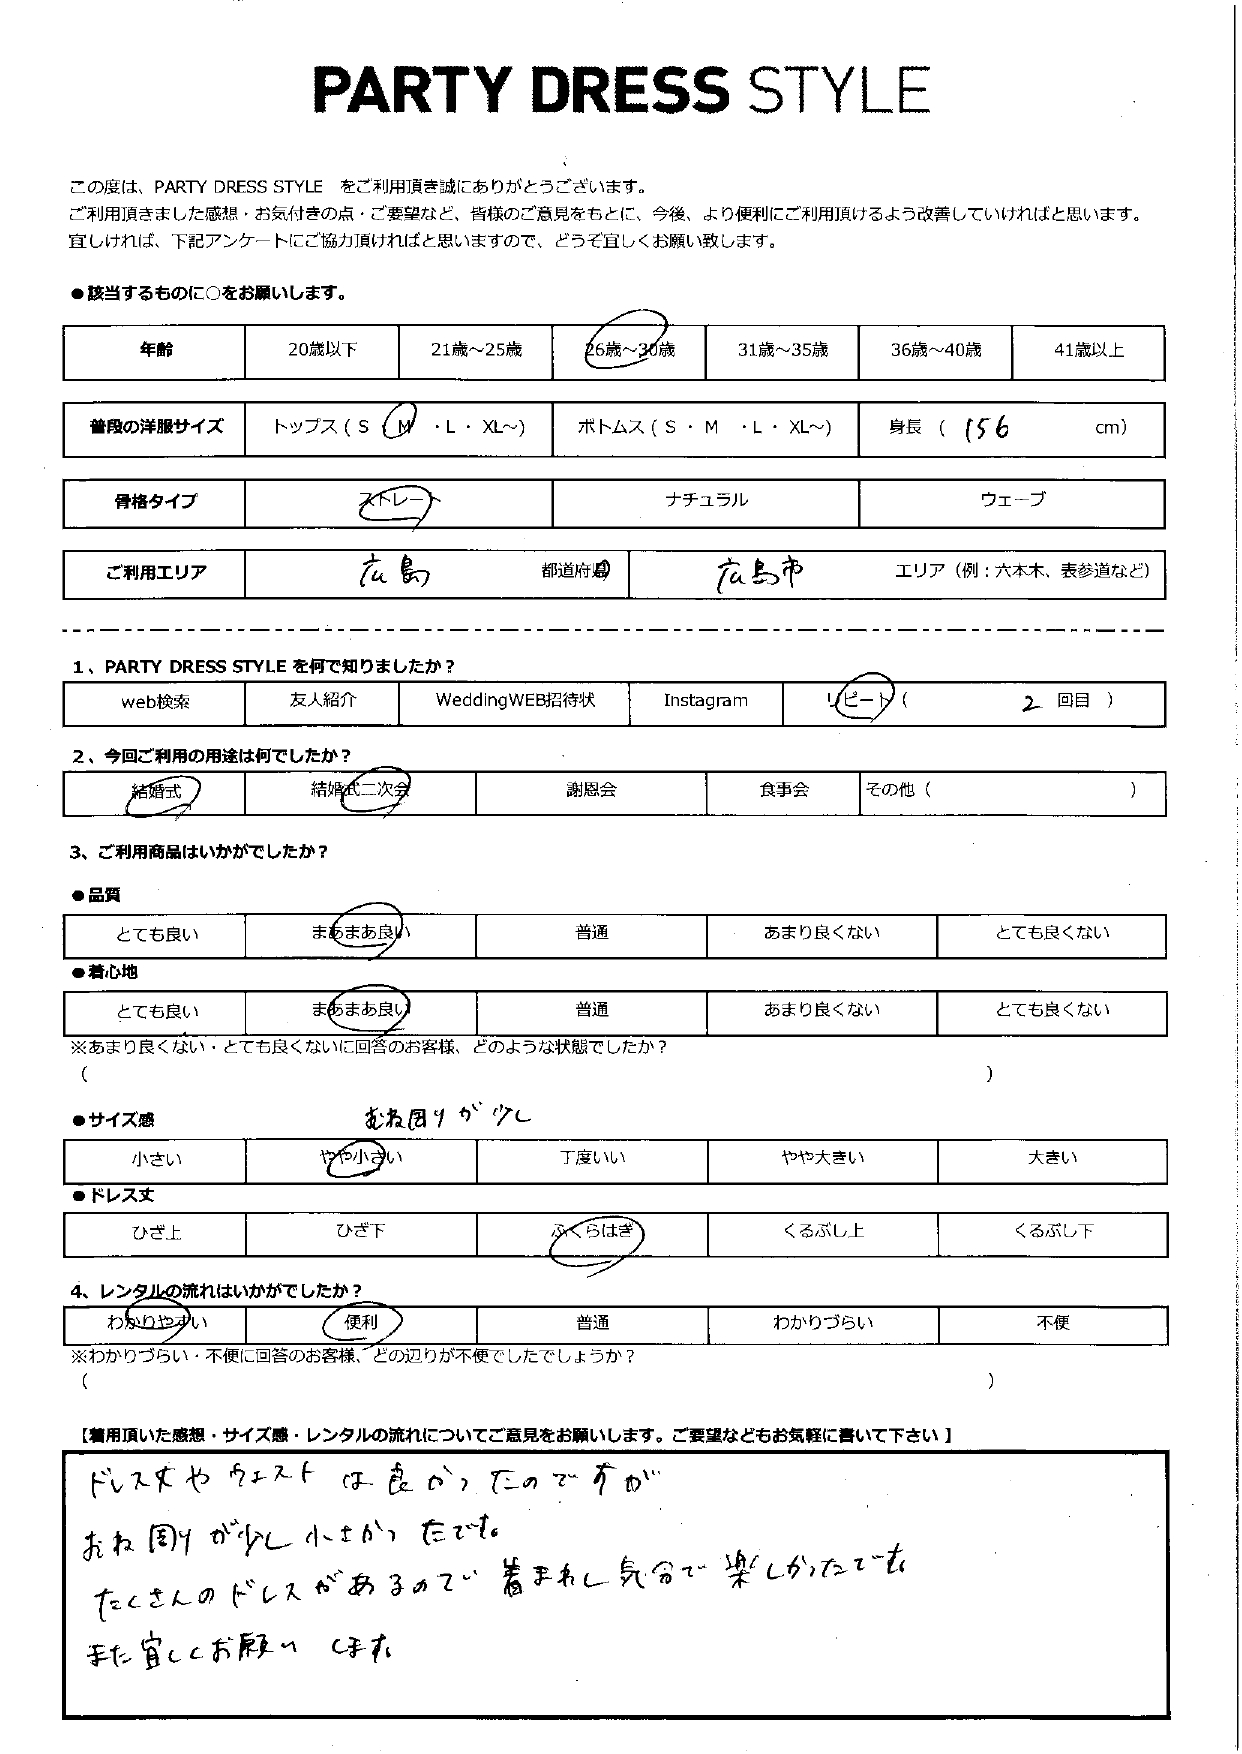 PARTY DRESS STYLE
この度は、PARTY DRESS STYLE をご利用頂き誠にありがとうございます。
ご利用頂きました感想・お気付きの点・ご要望など、皆様のご意見をもとに、今後、より便利にご利用頂けるよう改善していければと思います。
宜しければ、下記アンケートにご協力頂ければと思いますので、どうぞ宜しくお願い致します。
●該当するものに○をお願いします。
年齢 20歳以下 21歳～25歳 26歳～30歳 31歳～35歳 36歳～40歳 41歳以上
普段の洋服サイズ トップス ( S ・ M ・L ・ XL～) ボトムス ( S ・ M ・L ・ XL～) 身長 ( 156 cm)
骨格タイプ ストレート ナチュラル ウェーブ
ご利用エリア 広島 都道府県 広島市 エリア（例：六本木、表参道など）
1、PARTY DRESS STYLE を何で知りましたか？
web検索 友人紹介 WeddingWEB招待状 Instagram リピート ( 2 回目 )
2、今回ご利用の用途は何でしたか？
結婚式 結婚式二次会 謝恩会 食事会 その他 ( )
3、ご利用商品はいかがでしたか？
●品質
とても良い まあまあ良い 普通 あまり良くない とても良くない
●着心地
とても良い まあまあ良い 普通 あまり良くない とても良くない
※あまり良くない・とても良くないに回答のお客様、どのような状態でしたか？
( )
●サイズ感 むね回りが少し
小さい やや小さい 丁度いい やや大きい 大きい
●ドレス丈
ひざ上 ひざ下 ふくらはぎ くるぶし上 くるぶし下
4、レンタルの流れはいかがでしたか？
わかりやすい 便利 普通 わかりづらい 不便
※わかりづらい・不便に回答のお客様、どの辺りが不便でしたでしょうか？
( )
【着用頂いた感想・サイズ感・レンタルの流れについてご意見をお願いします。ご要望などもお気軽に書いて下さい】
ドレス丈やウエストは良かったのですが
むね周りが少し小さかったです。
たくさんのドレスがあるので着まわし気分で楽しかったです。
また宜しくお願いします。